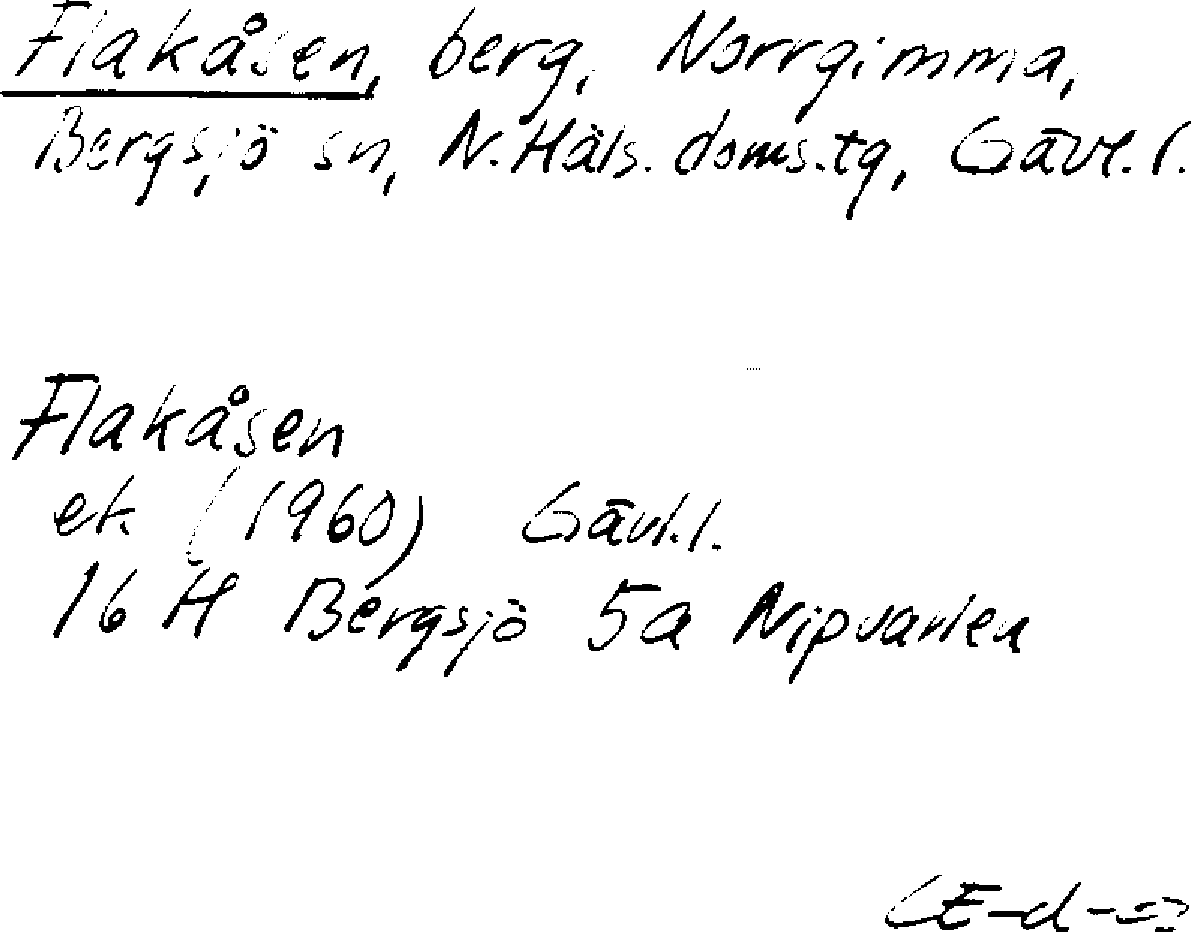 Flakåsen, berg, Norrgimma,
Bergsjö sn, N.Häls. doms.tg, Gävl.l.
Flakåsen
ek (1960) Gävl.l.
16 H Bergsjö 5a